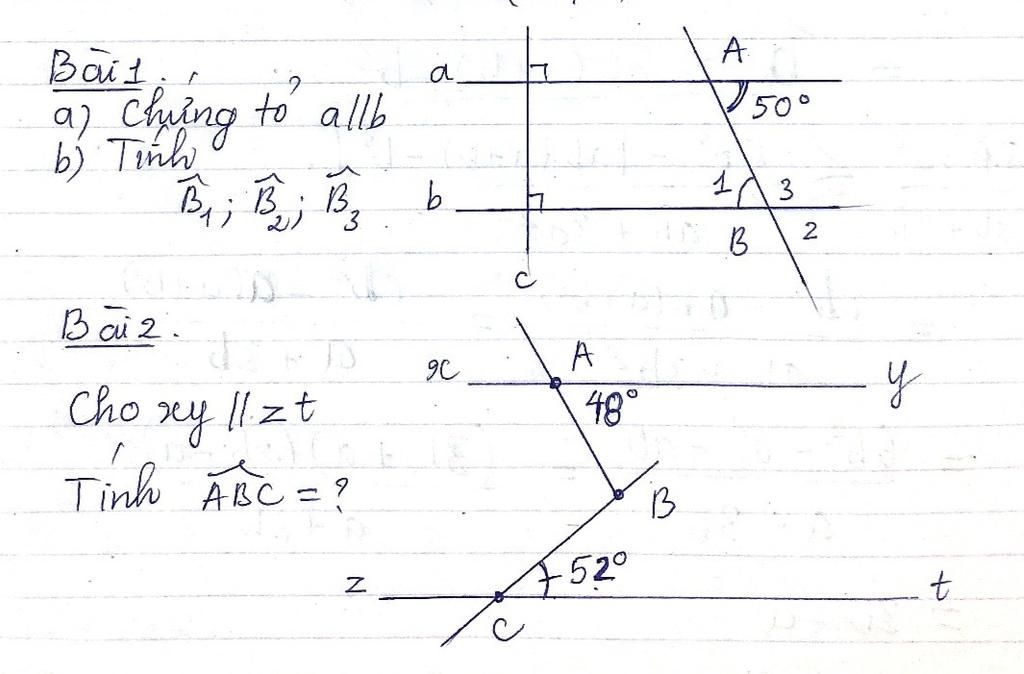 Bài 1.
a) Chứng tỏ a//b
b) Tính
B̂₁; B̂₂; B̂₃
a
A
50°
b
1
3
B
2
c
Bài 2.
Cho xy // zt
Tính ABC = ?
x
A
y
48°
B
z
52°
t
C